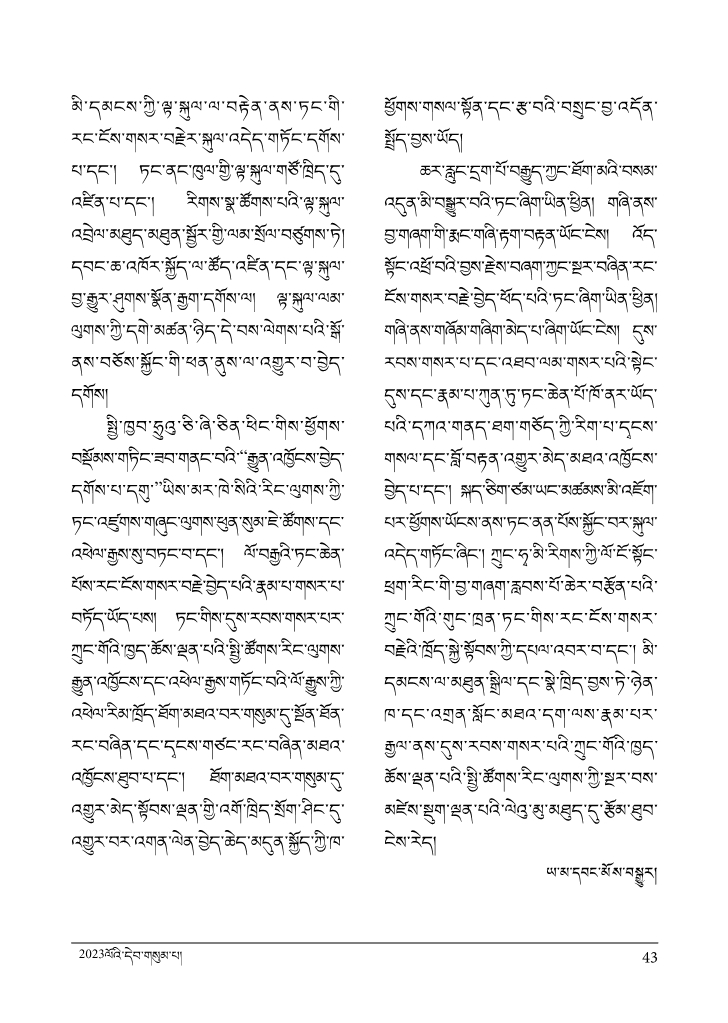 མི་དམངས་ཀྱི་ལྟ་སྐུལ་ལ་བརྟེན་ནས་ཏང་གི་
རང་ངོས་གསར་བརྗེར་སྐུལ་འདེད་གཏོང་དགོས་
པ་དང་། ཏང་ནང་ཁུལ་གྱི་ལྟ་སྐུལ་གཙོ་ཁྲིད་དུ་
འཛིན་པ་དང་། རིགས་སྣ་ཚོགས་པའི་ལྟ་སྐུལ་
འབྲེལ་མཐུད་མཐུན་སྦྱོར་གྱི་ལམ་སྲོལ་བཙུགས་ཏེ།
དབང་ཆ་འཁོར་སྐྱོད་ལ་ཚོད་འཛིན་དང་ལྟ་སྐུལ་
བྱ་རྒྱུར་ཤུགས་སྣོན་རྒྱག་དགོས་ལ། ལྟ་སྐུལ་ལམ་
ལུགས་ཀྱི་དགེ་མཚན་ཉིད་དེ་བས་ལེགས་པའི་སྒོ་
ནས་བཅོས་སྐྱོང་གི་ཕན་ནུས་ལ་འགྱུར་བ་བྱེད་
དགོས།
སྤྱི་ཁྱབ་ཧྲུའུ་ཅི་ཞི་ཅིན་ཕིང་གིས་ཕྱོགས་
བསྡོམས་གཏིང་ཟབ་གནང་བའི་“རྒྱུན་འཁྱོངས་བྱེད་
དགོས་པ་དགུ་”ཡིས་མར་ཁེ་སིའི་རིང་ལུགས་ཀྱི་
ཏང་འཛུགས་གཞུང་ལུགས་ཕུན་སུམ་ཇེ་ཚོགས་དང་
འཕེལ་རྒྱས་སུ་བཏང་བ་དང་། ལོ་བརྒྱའི་ཏང་ཆེན་
པོས་རང་ངོས་གསར་བརྗེ་བྱེད་པའི་རྣམ་པ་གསར་པ་
བཏོད་ཡོད་པས། ཏང་གིས་དུས་རབས་གསར་པར་
ཀྲུང་གོའི་ཁྱད་ཆོས་ལྡན་པའི་སྤྱི་ཚོགས་རིང་ལུགས་
རྒྱུན་འཁྱོངས་དང་འཕེལ་རྒྱས་གཏོང་བའི་ལོ་རྒྱུས་ཀྱི་
འཕེལ་རིམ་ཁྲོད་ཐོག་མཐའ་བར་གསུམ་དུ་སྔོན་ཐོན་
རང་བཞིན་དང་དྭངས་གཙང་རང་བཞིན་མཐའ་
འཁྱོངས་ཐུབ་པ་དང་། ཐོག་མཐའ་བར་གསུམ་དུ་
འགྱུར་མེད་སྟོབས་ལྡན་གྱི་འགོ་ཁྲིད་སྲོག་ཤིང་དུ་
འགྱུར་བར་འགན་ལེན་བྱེད་ཆེད་མདུན་སྐྱོད་ཀྱི་ཁ་
ཕྱོགས་གསལ་སྟོན་དང་རྩ་བའི་བསྲུང་བྱ་འདོན་
སྤྲོད་བྱས་ཡོད།
ཆར་རླུང་དྲག་པོ་བརྒྱུད་ཀྱང་ཐོག་མའི་བསམ་
འདུན་མི་བསྒྱུར་བའི་ཏང་ཞིག་ཡིན་ཕྱིན། གཞི་ནས་
བྱ་གཞག་གི་རྨང་གཞི་རྟག་བརྟན་ཡོང་ངེས། འོད་
སྟོང་འཕྲོ་བའི་བྱས་རྗེས་བཞག་ཀྱང་སྔར་བཞིན་རང་
ངོས་གསར་བརྗེ་བྱེད་ཕོད་པའི་ཏང་ཞིག་ཡིན་ཕྱིན།
གཞི་ནས་གཞོམ་གཞིག་མེད་པ་ཞིག་ཡོང་ངེས། དུས་
རབས་གསར་པ་དང་འཐབ་ལམ་གསར་པའི་སྟེང་
དུས་དང་རྣམ་པ་ཀུན་ཏུ་ཏང་ཆེན་པོ་ཁོ་ནར་ཡོད་
པའི་དཀའ་གནད་ཐག་གཅོད་ཀྱི་རིག་པ་དྭངས་
གསལ་དང་བློ་བརྟན་འགྱུར་མེད་མཐའ་འཁྱོངས་
བྱེད་པ་དང་། སྐད་ཅིག་ཙམ་ཡང་མཚམས་མི་འཇོག་
པར་ཕྱོགས་ཡོངས་ནས་ཏང་ནན་པོས་སྐྱོང་བར་སྐུལ་
འདེད་གཏོང་ཞིང་། ཀྲུང་ཧྭ་མི་རིགས་ཀྱི་ལོ་ངོ་སྟོང་
ཕྲག་རིང་གི་བྱ་གཞག་རླབས་པོ་ཆེར་བརྩོན་པའི་
ཀྲུང་གོའི་གུང་ཁྲན་ཏང་གིས་རང་ངོས་གསར་
བརྗེའི་ཁྲོད་སྐྱེ་སྟོབས་ཀྱི་དཔལ་འབར་བ་དང་། མི་
དམངས་ལ་མཐུན་སྒྲིལ་དང་སྣེ་ཁྲིད་བྱས་ཏེ་ཉེན་
ཁ་དང་འགྲན་སློང་མཐའ་དག་ལས་རྣམ་པར་
རྒྱལ་ནས་དུས་རབས་གསར་པའི་ཀྲུང་གོའི་ཁྱད་
ཆོས་ལྡན་པའི་སྤྱི་ཚོགས་རིང་ལུགས་ཀྱི་སྔར་བས་
མཛེས་སྡུག་ལྡན་པའི་ལེའུ་མུ་མཐུད་དུ་རྩོམ་ཐུབ་
ངེས་རེད།
ཡ་མ་དབང་མོས་བསྒྱུར།
2023ལོའི་དེབ་གསུམ་པ།
43